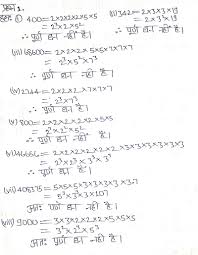 प्रश्न 1.
हल: (i) 400 = 2×2×2×2×5×5
= 2³×2×5²
∴ पूर्ण घन नहीं है।
(ii) 342 = 2×3×3×19
= 2×3²×19
∴ पूर्ण घन नहीं है।
(iii) 68600 = 2×2×2×5×5×7×7×7
= 2³×5²×7³
∴ पूर्ण घन नहीं है।
(iv) 2744 = 2×2×2×7×7×7
= 2³×7³
∴ पूर्ण घन है।
(v) 800 = 2×2×2×2×2×5×5
= 2³×2²×5²
∴ पूर्ण घन नहीं है।
(vi) 46656 = 2×2×2×2×2×2×3×3×3×3×3×3
= 2³×2³×3³×3³
∴ पूर्ण घन है।
(vii) 405375 = 5×5×5×3×3×3×3.7
= 5³×3³×107
अतः पूर्ण घन नहीं है।
(viii) 9000 = 3×3×2×2×2×5×5×5
= 3²×2³×5³
अतः पूर्ण घन नहीं है।